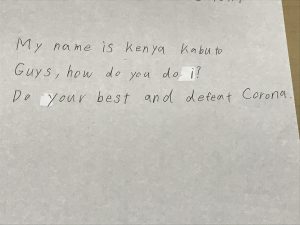 My name is Kenya Kabuto
Guys, how do you do i?
Do your best and defeat Corona.